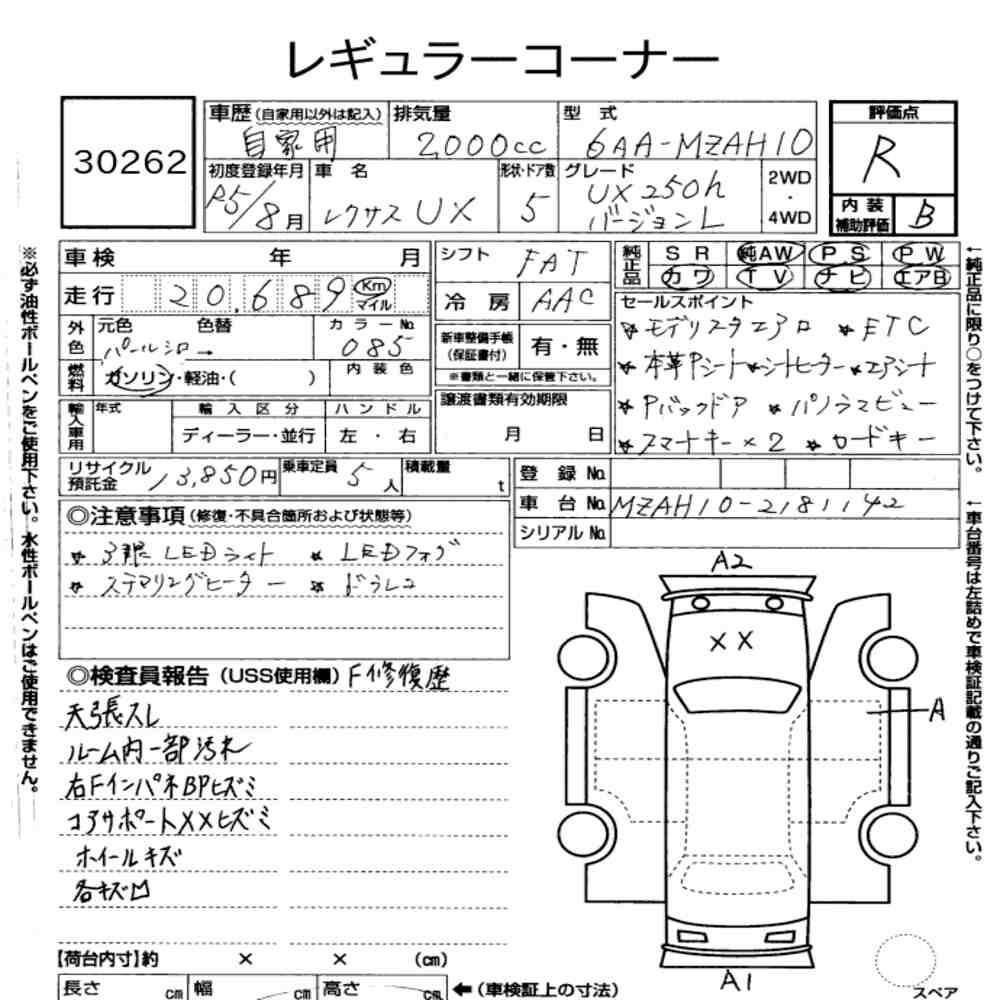 レギュラーコーナー
30262
車歴(自家用以外は記入)
自家用
排気量
2,000cc
型式
6AA-MZAH10
評価点
R
初度登録年月
R5/8月
車名
レクサス UX
形状・ドア数
5
グレード
UX250h
バージョンL
2WD
・
4WD
内装
補助評価
B
車検 年 月
走行 20,689 Km
マイル
シフト FAT
冷房 AAC
純正品
SR 純AW PS PW
カワ TV ナビ エアB
外色
元色 色替
パールシロ →
カラーNo.
085
燃料
ガソリン・軽油・( )
内装色
新車整備手帳
(保証書付)
有・無
※書類と一緒に保管下さい。
セールスポイント
☆モデリスタエアロ ☆ETC
☆本革Pシート☆シートヒーター☆エアシート
☆Pバックドア ☆パノラマビュー
☆スマートキー×2 ☆カードキー
輸入車用
年式
輸入区分
ディーラー・並行
ハンドル
左・右
譲渡書類有効期限
月 日
リサイクル
預託金
13,850円
乗車定員 5人
積載量 t
登録No.
車台No. MZAH10-2181142
シリアルNo.
◎注意事項(修復・不具合箇所および状態等)
☆ 3眼LEDライト ☆ LEDフォグ
☆ ステアリングヒーター ☆ ドラレコ
◎検査員報告(USS使用欄) F修復歴
天張スレ
ルーム内一部汚れ
右FインパネBPヒズミ
コアサポートXXヒズミ
ホイールキズ
各キズ凹
A2
XX
A
A1
【荷台内寸】約 × × (cm)
長さ cm 幅 cm 高さ cm
←(車検証上の寸法)
スペア
※必ず油性ボールペンをご使用下さい。水性ボールペンはご使用できません。
←純正品に限り○をつけて下さい。
←車台番号は左詰めで車検証記載の通りご記入下さい。